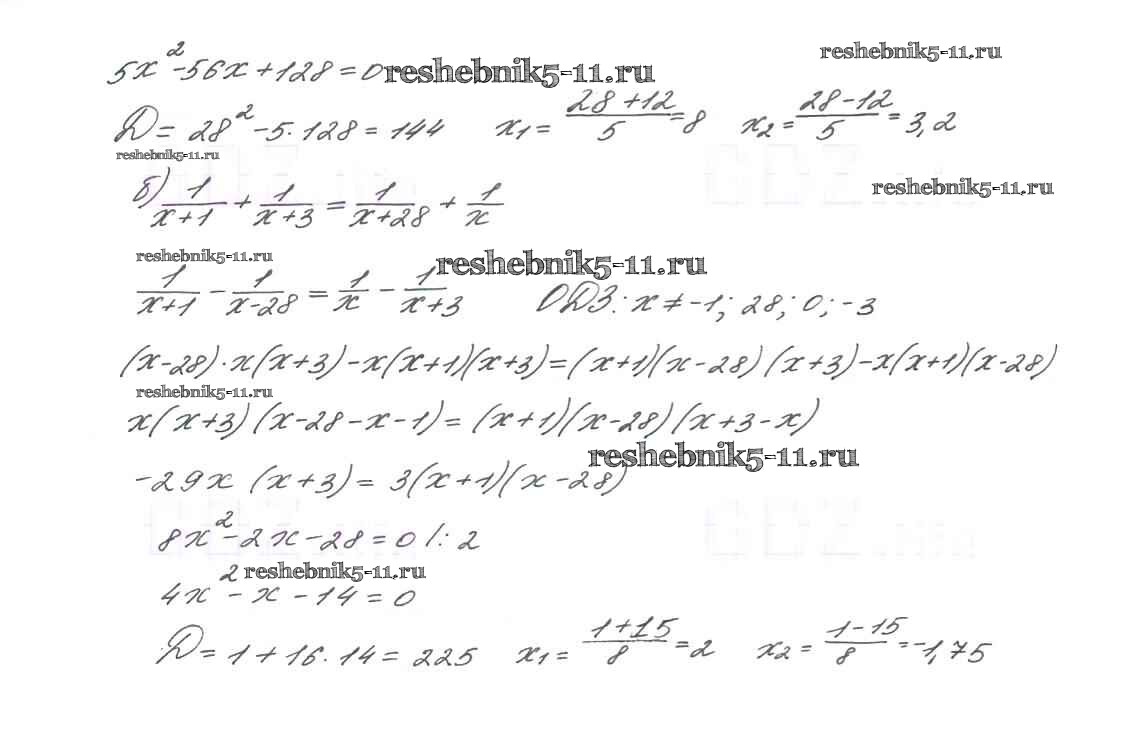 5x²-56x+128=0 reshebnik5-11.ru reshebnik5-11.ru
D=28²-5·128=144 x₁=(28+12)/5=8 x₂=(28-12)/5=3,2
reshebnik5-11.ru
б) 1/(x+1) + 1/(x+3) = 1/(x+28) + 1/x reshebnik5-11.ru
reshebnik5-11.ru reshebnik5-11.ru
1/(x+1) - 1/(x-28) = 1/x - 1/(x+3) ОДЗ: x≠-1; 28; 0; -3
(x-28)·x(x+3)-x(x+1)(x+3)=(x+1)(x-28)(x+3)-x(x+1)(x-28)
reshebnik5-11.ru
x(x+3)(x-28-x-1)=(x+1)(x-28)(x+3-x)
reshebnik5-11.ru
-29x(x+3)=3(x+1)(x-28)
8x²-2x-28=0 /:2
reshebnik5-11.ru
4x²-x-14=0
D=1+16·14=225 x₁=(1+15)/8=2 x₂=(1-15)/8=-1,75